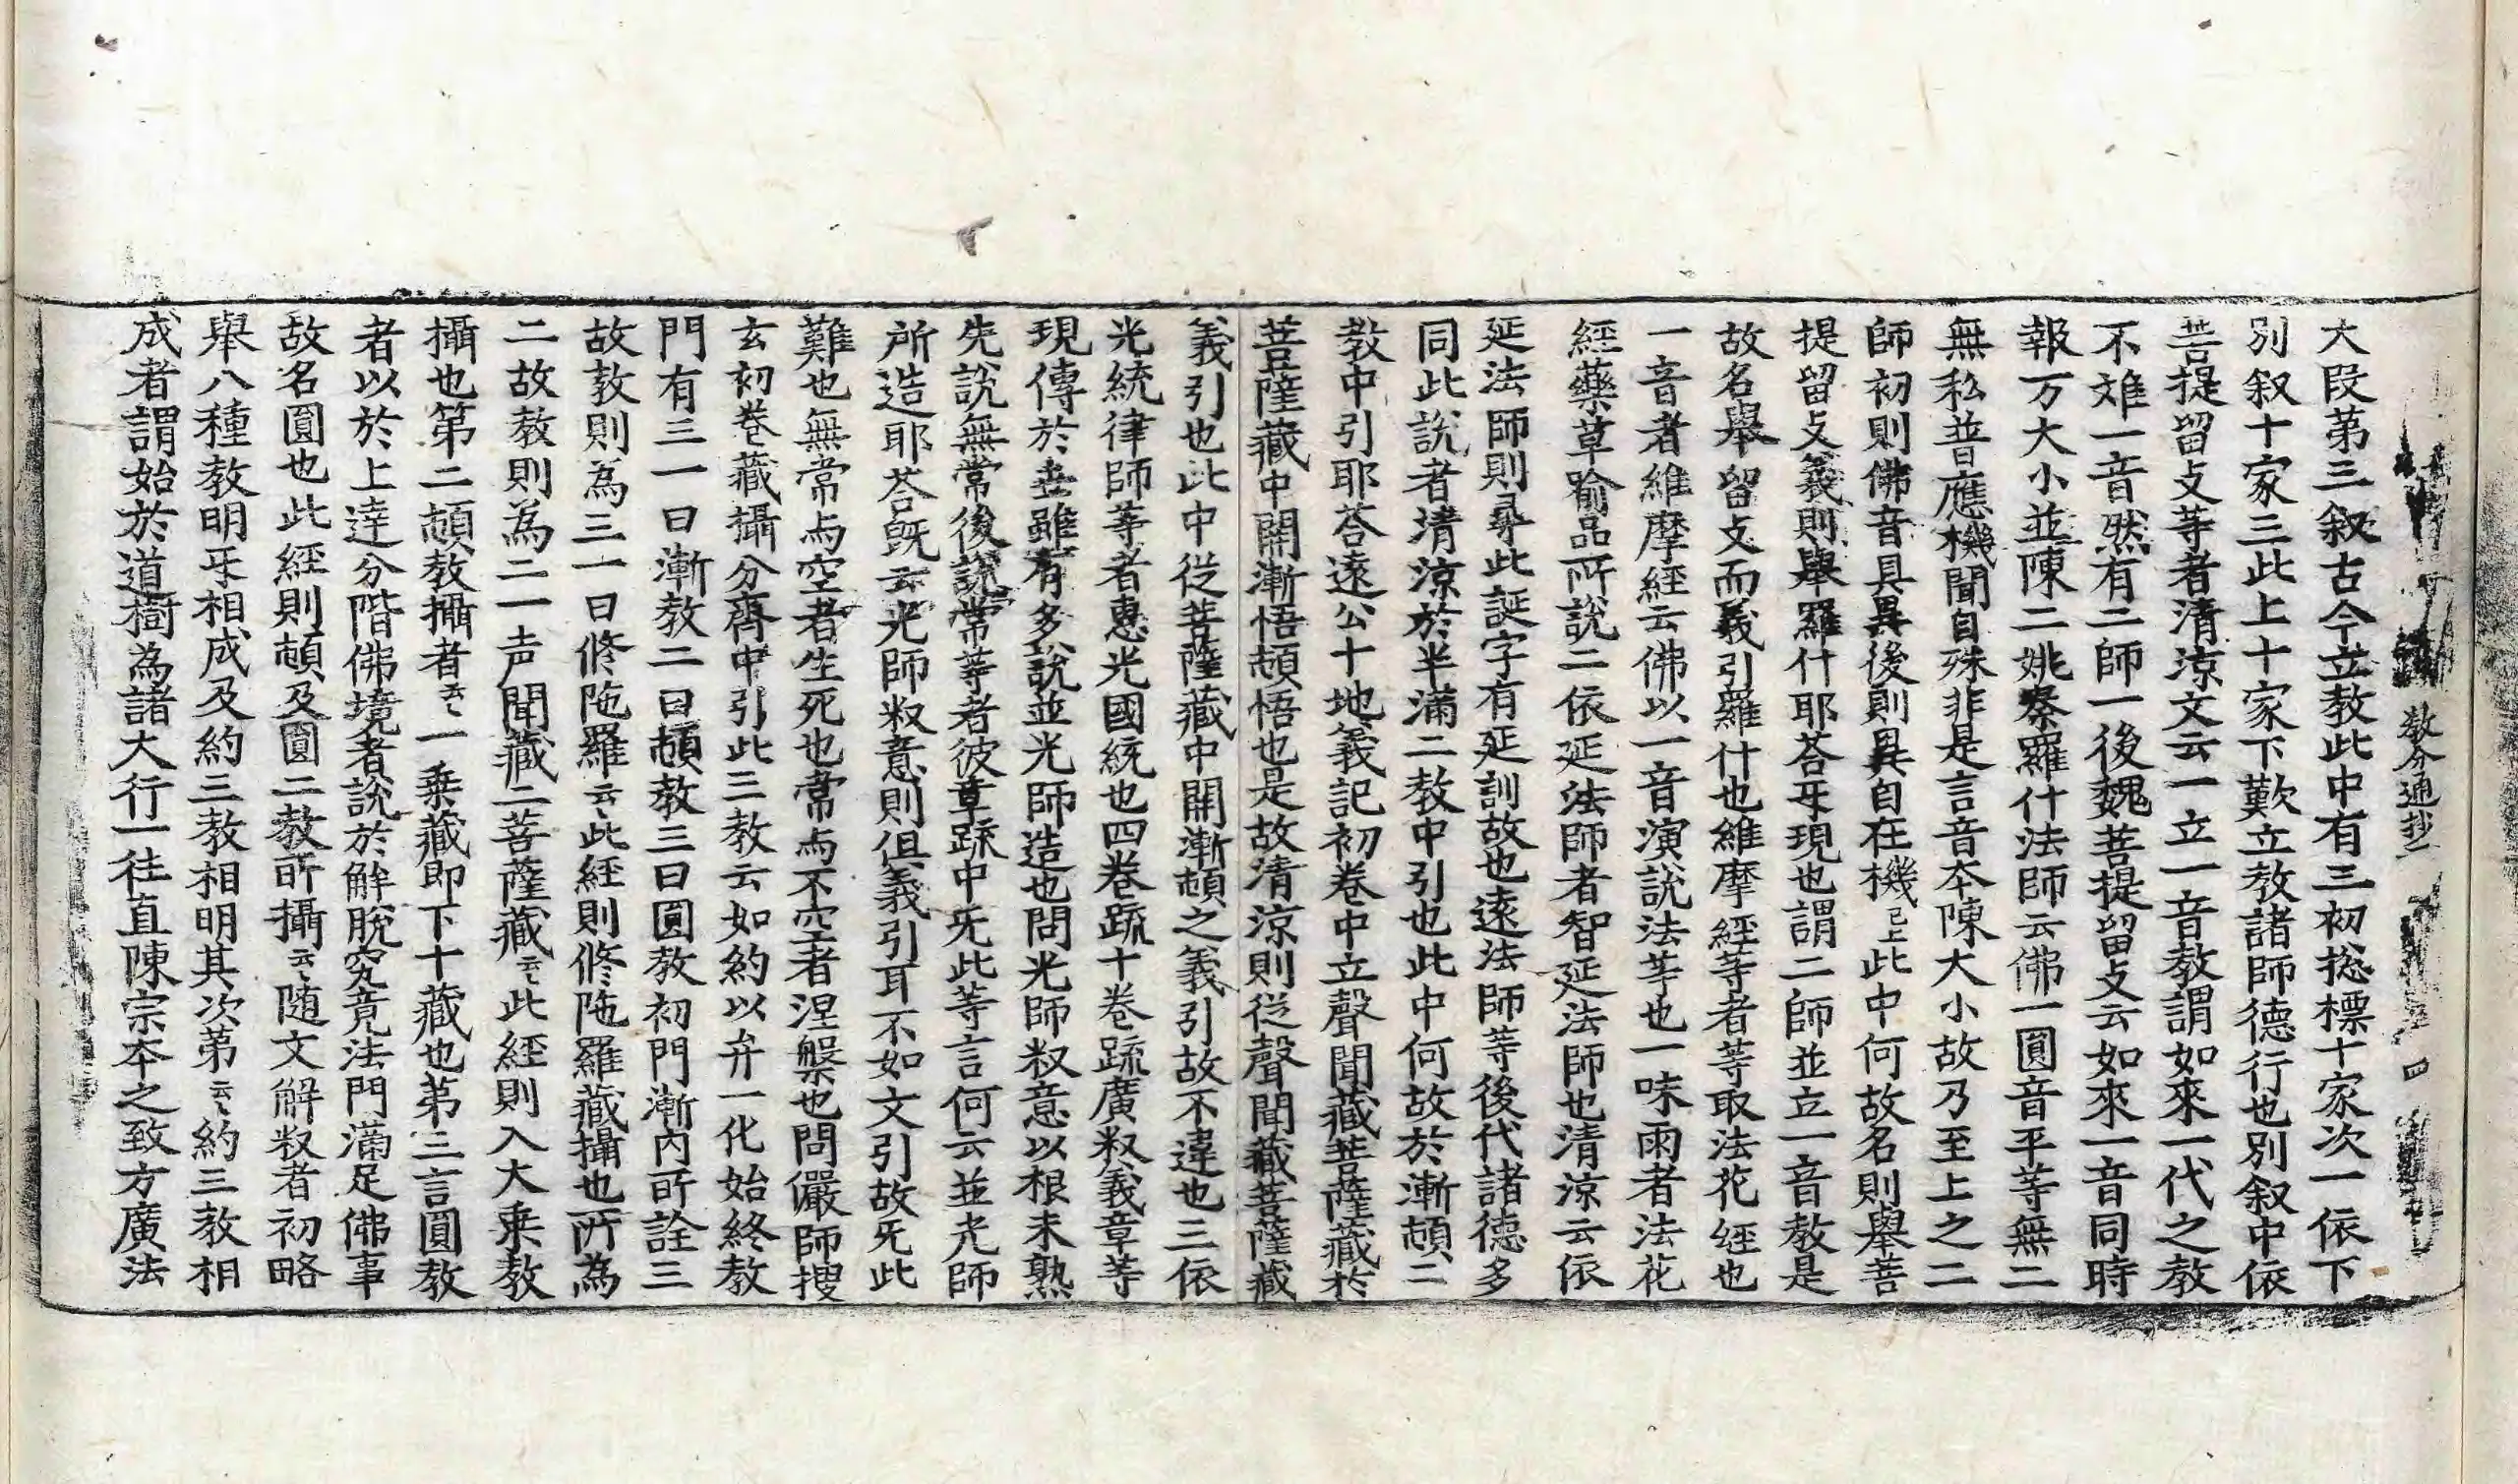 教分通抄 四
大段第三叙古今立教此中有三初揔標十家次一依下
別叙十家三此上十家下歎立教諸師德行也別叙中依
菩提留支等者清涼文云一立一音教謂如來一代之教
不𨾏一音然有二師一後魏菩提留支云如來一音同時
報万大小並陳二姚秦羅什法師云佛一圓音平等無二
無私普應機聞自殊非是言音夲陳大小故乃至上之二
師初則佛音具異後則異自在機已上此中何故名則舉菩
提留支義則舉羅什耶荅㸦現也謂二師並立一音教是
故名舉留支而義引羅什也維摩經等者等取法花經也
一音者維摩經云佛以一音演說法等也一味雨者法花
經藥草喩品所說二依延法師者智延法師也清涼云依
延法師則尋此誕字有延訓故也遠法師等後代諸德多
同此說者清涼於半滿二教中引也此中何故於漸頓二
教中引耶荅遠公十地義記初卷中立聲聞藏菩薩藏於
菩薩藏中開漸悟頓悟也是故清涼則從聲聞藏菩薩藏
義引也此中從菩薩藏中開漸頓之義引故不違也三依
光統律師等者惠光國統也四卷疏十卷疏廣釈義章等
現傳於世雖有多說並光師造也問光師釈意以根未熟
先說無常後說常等者彼章䟽中旡此等言何云並光師
所造耶荅旣云光師釈意則但義引耳不如文引故旡此
難也無常与空者生死也常与不空者涅槃也問儼師搜
玄初卷藏攝分齊中引此三教云如約以弁一化始終教
門有三一曰漸教二曰頓教三曰圓教初門漸內所詮三
故教則為三一曰修陁羅云云此經則修陁羅藏攝也所為
二故教則為二一声聞藏二菩薩藏云云此經則入大乗教
攝也第二頓教攝者云云一乗藏即下十藏也第三言圓教
者以於上達分階佛境者說於解脫究竟法門滿足佛事
故名圓也此經則頓及圓二教所攝云云随文解釈者初略
舉八種教明㸦相成及約三教相明其次第云云約三教相
成者謂始於道樹為諸大行一徃直陳宗夲之致方廣法